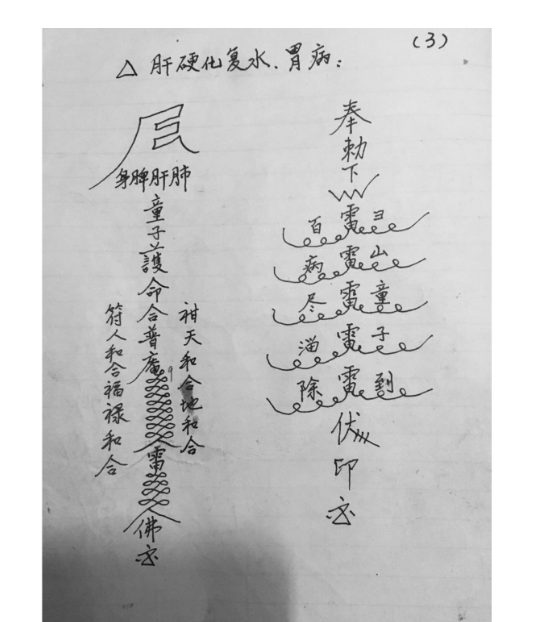 (3)
△ 肝硬化复水、胃病：
身脾肝肺
童子護命合普庵
雷
佛
符人和合福禄和合
天和合地和合
奉勅下
百雷ヨ
病雷山
尽雷童
雷子
除雷到
伏
印